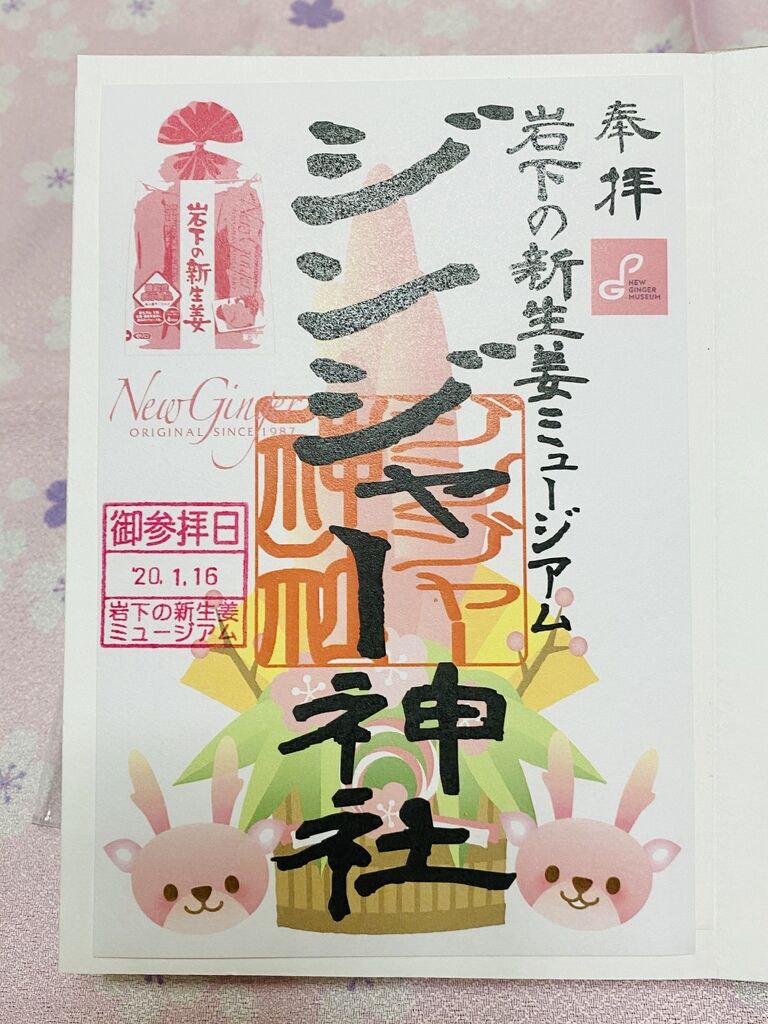 奉拝
NEW
GINGER
MUSEUM
岩下の新生姜ミュージアム
ジンジャー神社
ジンジャー
神社
岩下の新生姜
New Ginger
ORIGINAL SINCE 1987
御参拝日
'20.1.16
岩下の新生姜
ミュージアム